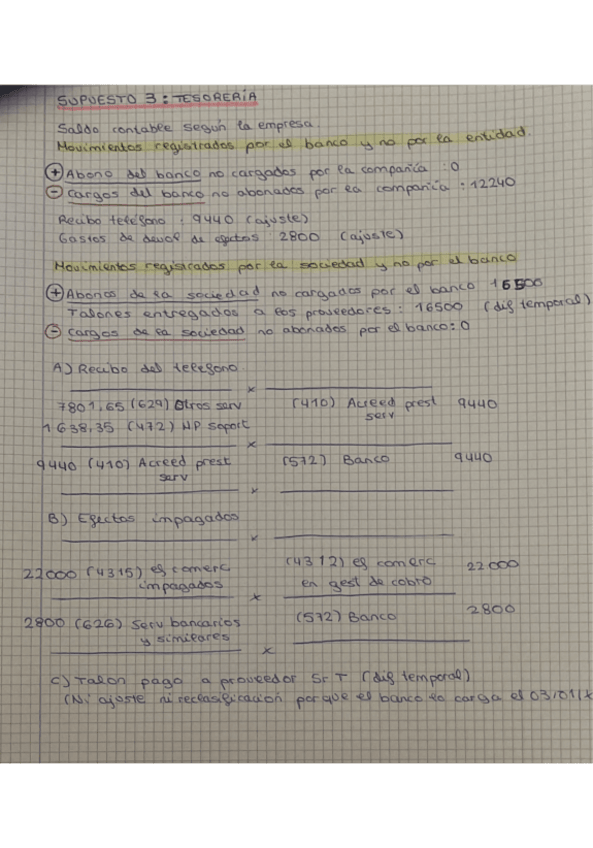 SUPUESTO 3: TESORERÍA
Saldo contable según la empresa.
Movimientos registrados por el banco y no por la entidad.
+ Abono del banco no cargados por la compañía : 0
- Cargos del banco no abonados por la compañía : 12240
Recibo teléfono : 9440 (ajuste)
Gastos de devol de efectos : 2800 (ajuste)
Movimientos registrados por la sociedad y no por el banco
+ Abonos de la sociedad no cargados por el banco 16500
Talones entregados a los proveedores : 16500 (dif temporal)
- Cargos de la sociedad no abonados por el banco: 0
A) Recibo del teléfono.
x
7801,65 (629) Otros serv (410) Acreed prest serv 9440
1638,35 (472) HP soport
x
9440 (410) Acreed prest serv (572) Banco 9440
x
B) Efectos impagados
x
22000 (4315) ef comerc impagados (4312) ef comerc en gest de cobro 22.000
x
2800 (626) Serv bancarios y similares (572) Banco 2800
x
C) Talón pago a proveedor Sr T (dif temporal)
(Ni ajuste ni reclasificación porque el banco lo carga el 03/01/